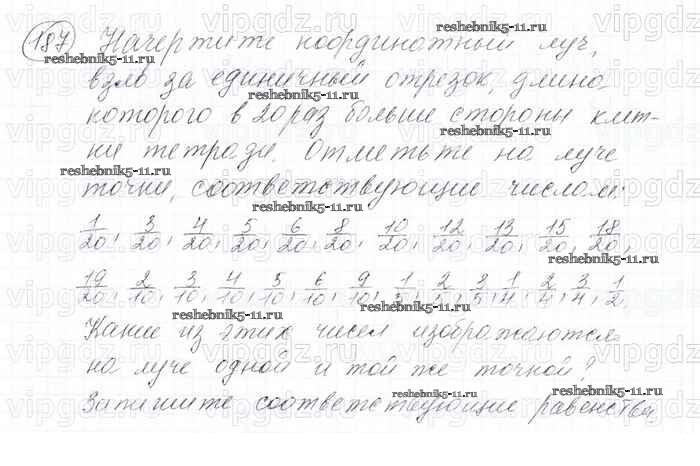 187 Начертите координатный луч,
взяв за единичный отрезок, длина
которого в 20 раз больше стороны клет-
ки тетради. Отметьте на луче
точки, соответствующие числам:
1/20, 3/20, 4/20, 5/20, 6/20, 8/20, 10/20, 12/20, 13/20, 15/20, 18/20,
19/20, 2/10, 3/10, 4/10, 5/10, 6/10, 9/10, 1/5, 2/5, 3/5, 1/4, 2/4, 3/4, 1/2.
Какие из этих чисел изображаются
на луче одной и той же точкой?
Запишите соответствующие равенства
reshebnik5-11.ru
vipgdz